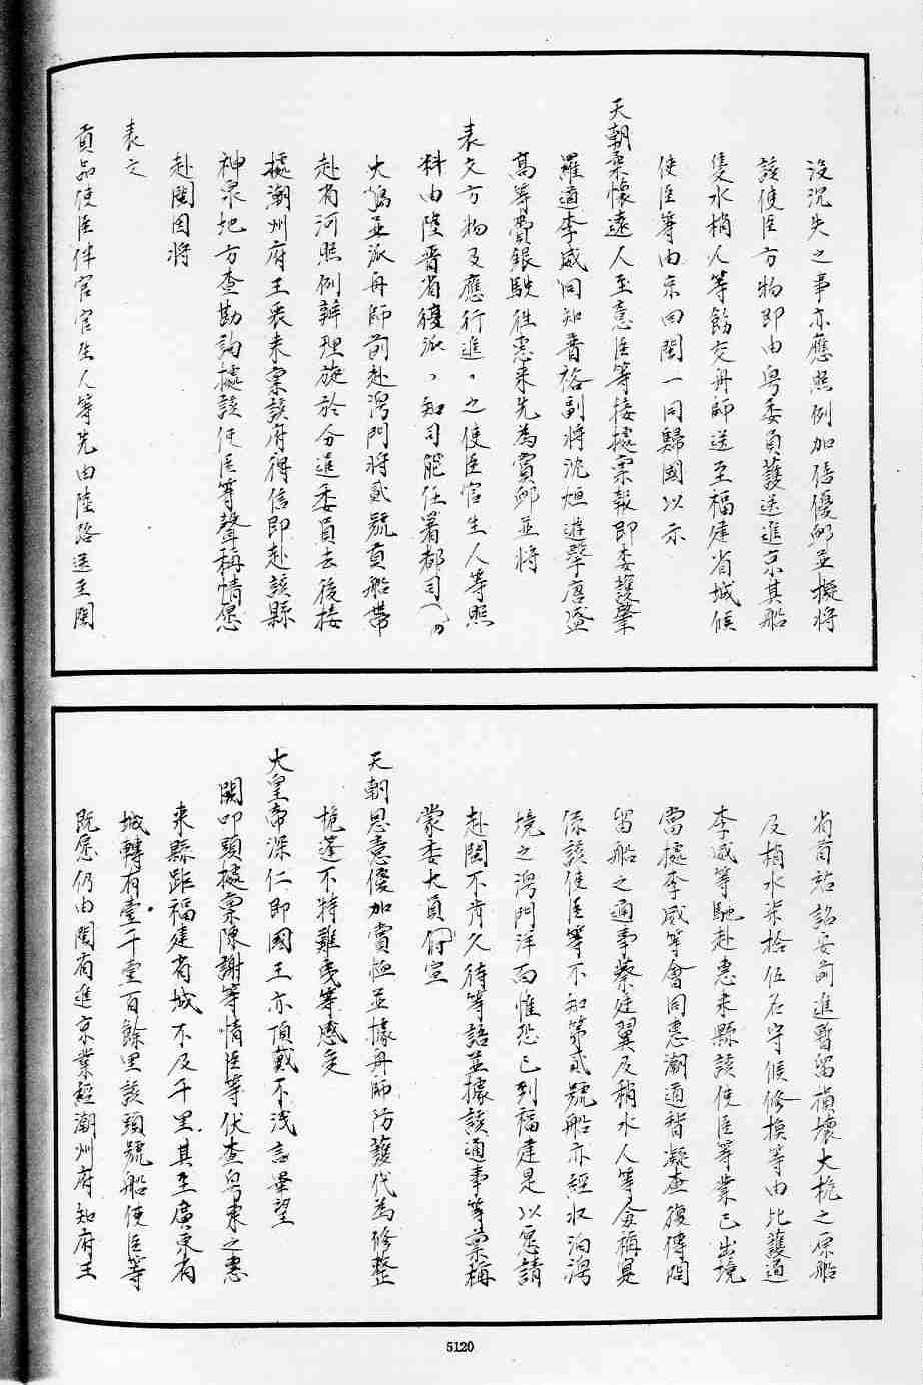 沒沉失之事亦應照例加倍優卹並擬將
該使臣方物即由粵委員護送進京其船
隻水梢人等飭交舟師送至福建省城候
使臣等由京回閩一同歸國以示
天朝柔懷遠人至意臣等接據稟報即委護肇
羅道李威同知普裕副將沈烜遊擊唐
高等賫銀馳往惠來先為賞卹並將
表文方物及應行進京之使臣官生人等照
料由陸晋省復派知司能任署都司
大鵬並派舟師前赴灣門將貳號貢船帶
赴省河照例辦理旋於分進委員去後接
據潮州府王丧来稟該府得信即赴該縣
神泉地方查勘詢據該使臣等聲稱情愿
赴閩因將
表文
貢品使臣伴官官生人等先由陸路送至閩
省首站詔安前進暫留損壞大桅之原船
及梢水柒拾伍名守候修換等由比護道
李威等馳赴惠來縣該使臣等業已出境
當據李威等會同惠潮道稽凝查復傳問
留船之通事蔡廷翼及稍水人等僉稱是
該使臣等不知第貳號船亦經收泊灣
境之灣門洋面惟恐已到福建是以愿請
赴閩不肯久待等語並據該通事等稟稱
蒙委大員
天朝恩意優加賞恤並據舟師防護代為修整
桅篷不特難夷等感定
大皇帝深仁即國王亦頂戴不淺言畢望
闕叩頭據稟陳謝等情臣等伏查粵東之惠
來縣距福建省城不及千里其至廣東省
城轉有壹千壹百餘里該頭號船使臣等
既愿仍由閩省進京業經潮州府知府王
5120